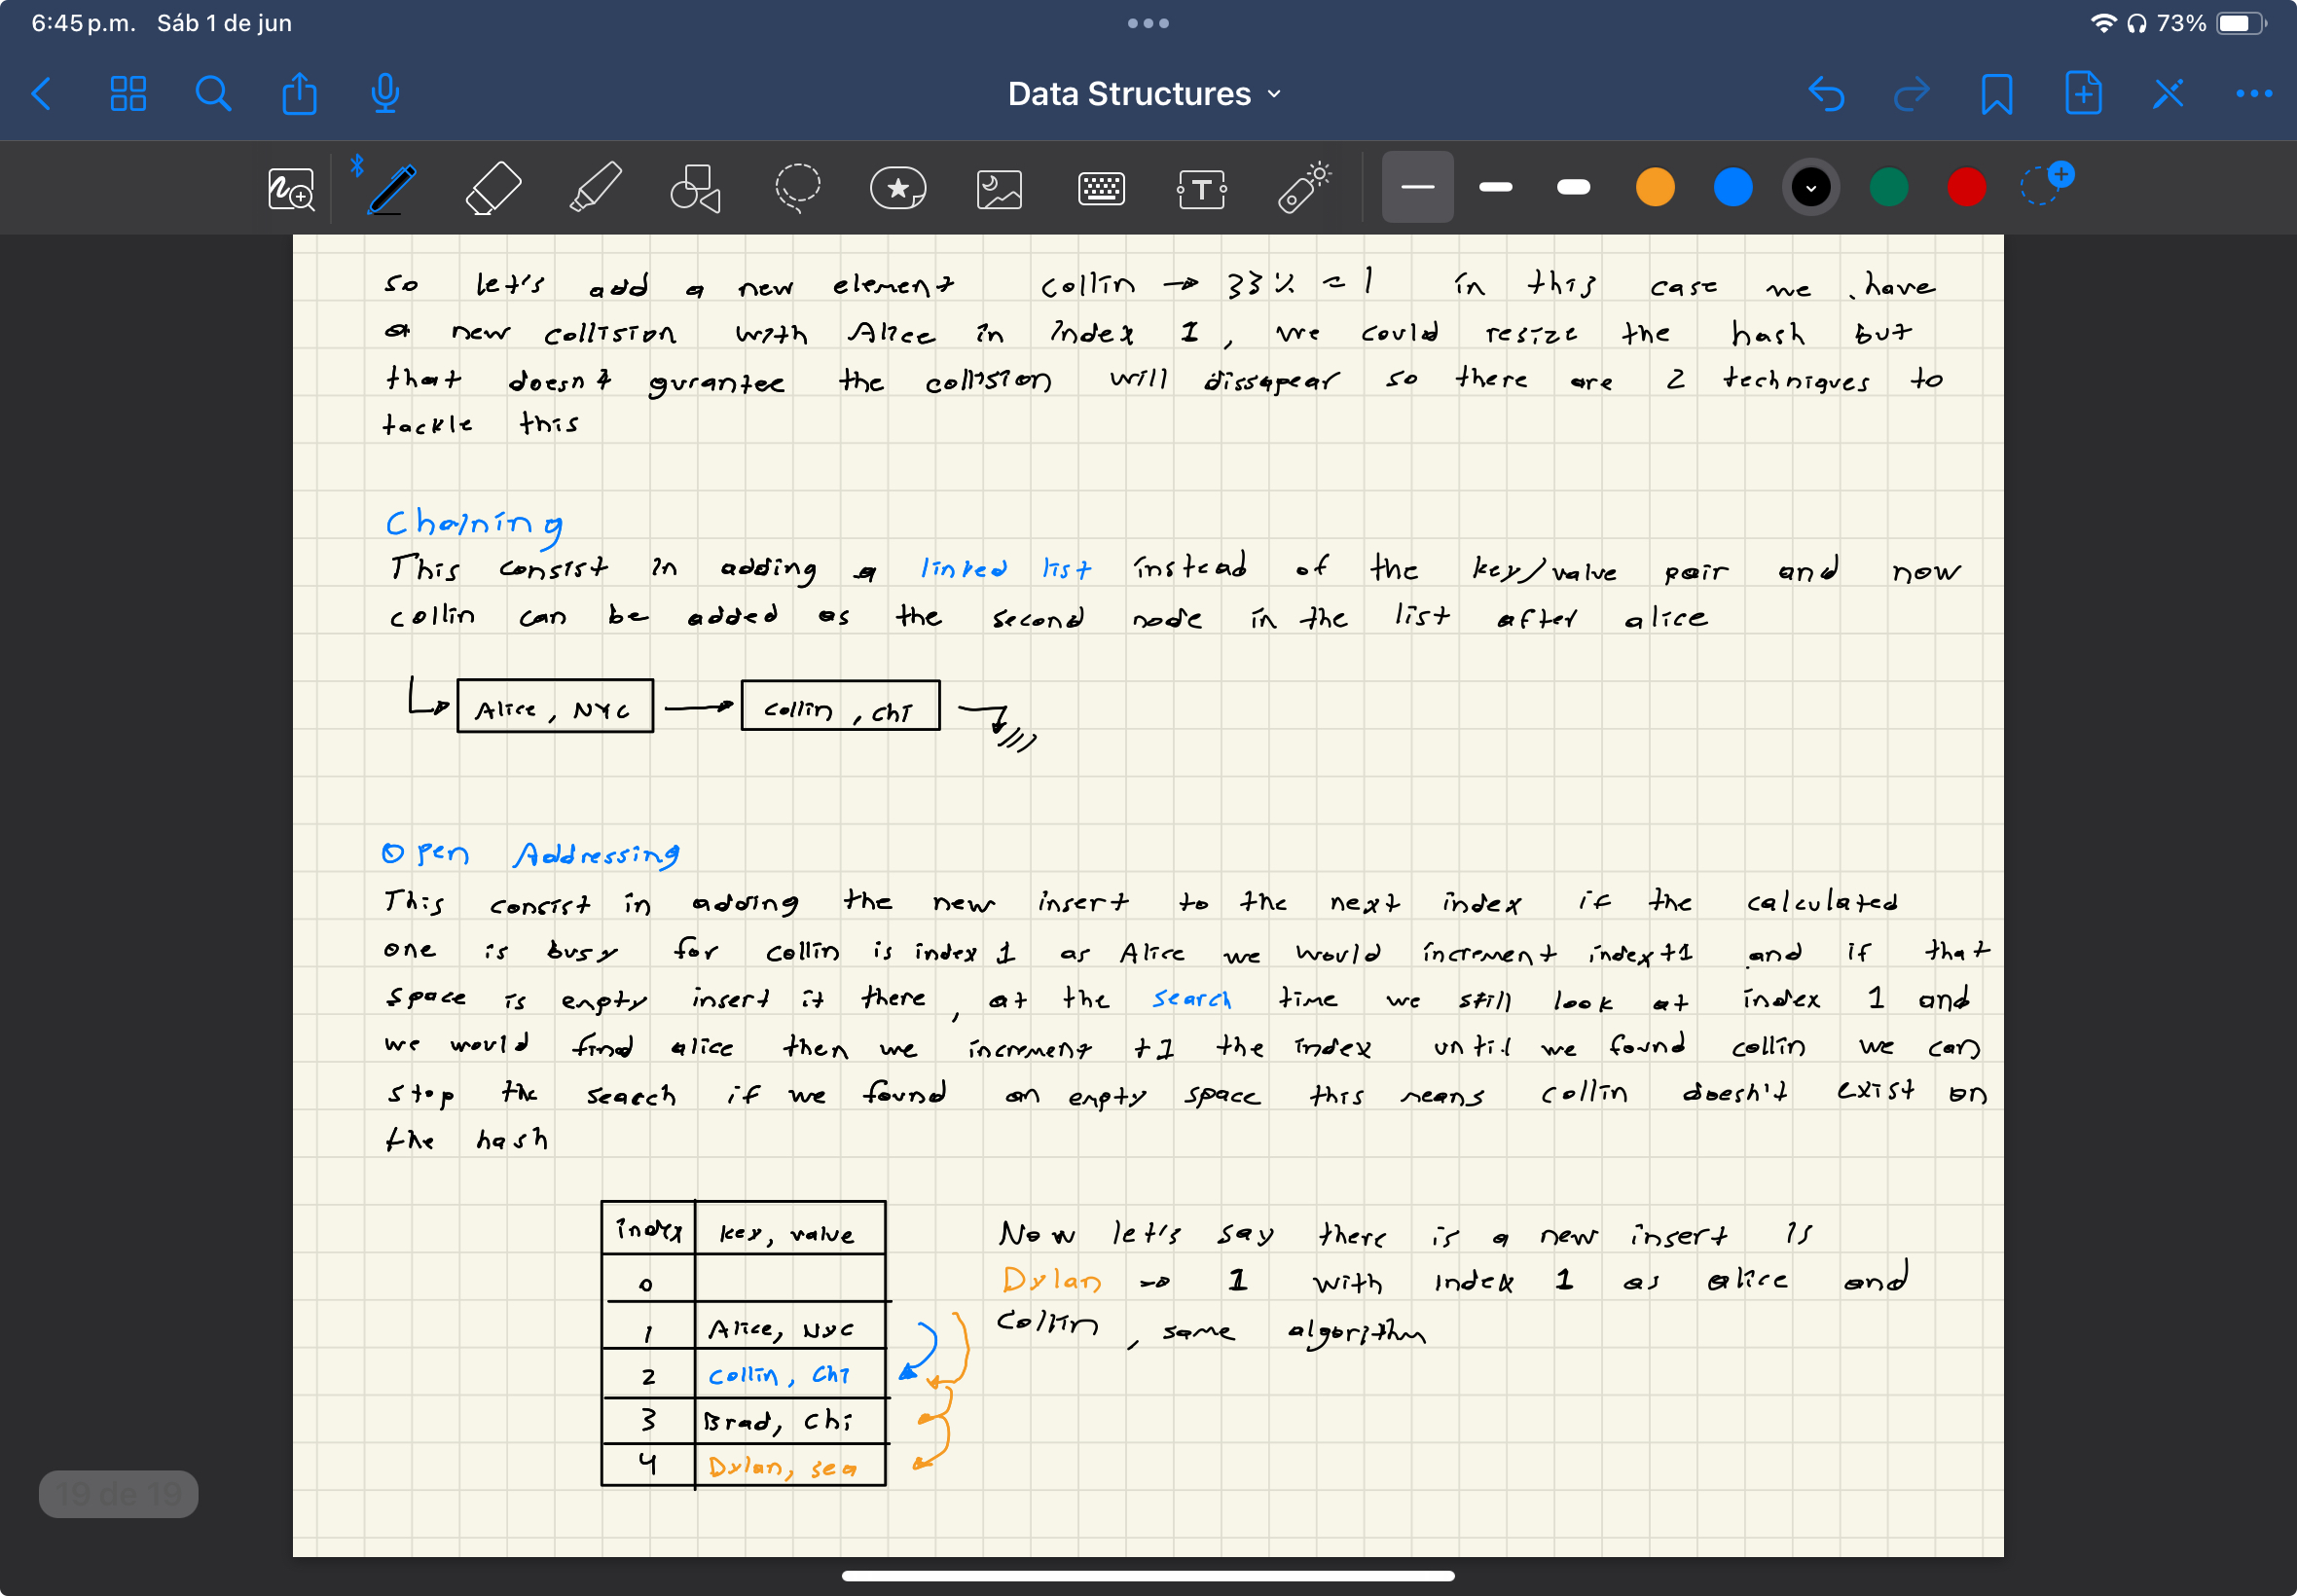 6:45 p.m. Sáb 1 de jun
73%
Data Structures
T
so let's add a new element collin → 33 % = 1 in this case we have
a new collision with Alice in index 1, we could resize the hash but
that doesn't gurantee the collision will dissapear so there are 2 techniques to
tackle this
Chaining
This consist in adding a linked list instead of the key/value pair and now
collin can be added as the second node in the list after alice
Alice, NYC → collin, chi
Open Addressing
This consist in adding the new insert to the next index if the calculated
one is busy for collin is index 1 as Alice we would increment index+1 and if that
space is empty insert it there, at the search time we still look at index 1 and
we would find alice then we increment +1 the index until we found collin we can
stop the search if we found an empty space this means collin doesn't exist on
the hash
index key, value
0
1 Alice, NYC
2 collin, chi
3 Brad, chi
4 Dylan, sea
Now let's say there is a new insert is
Dylan → 1 with index 1 as alice and
Collin, same algorithm
19 de 19